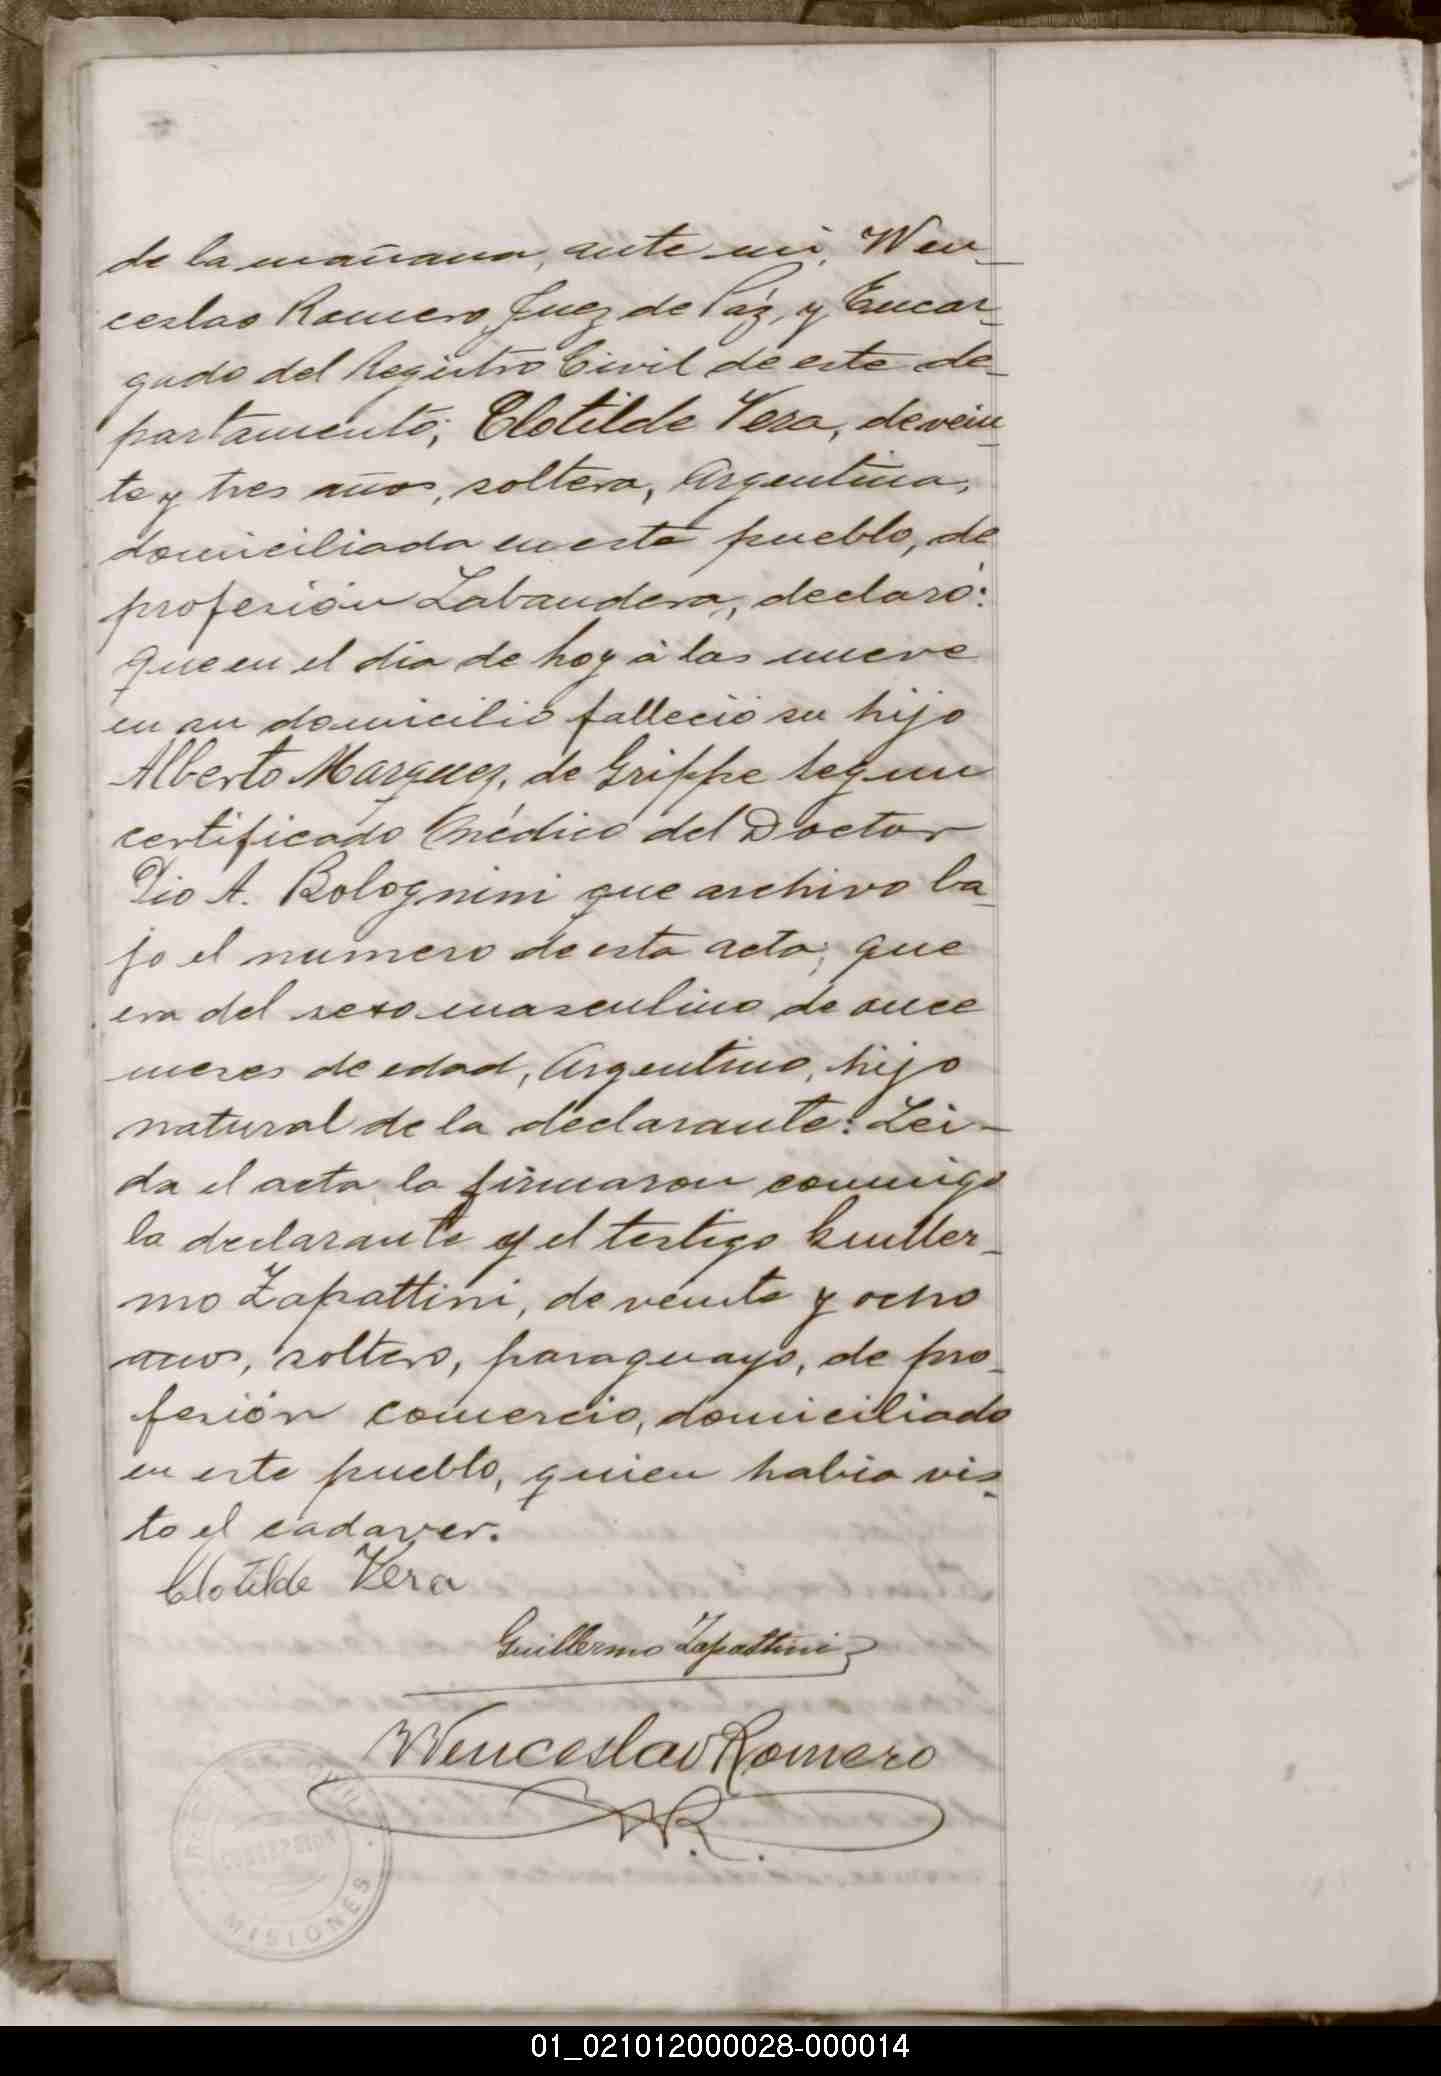 de la mañana, ante mi, Wen-
ceslao Romero, Juez de Páz, y Encar-
gado del Registro Civil de este de-
partamento; Clotilde Vera, de vein-
te y tres años, soltera, Argentina,
domiciliada en este pueblo, de
profesión Labandera, declaró:
Que en el dia de hoy á las nueve
en su domicilio falleció su hijo
Alberto Marquez, de Grippe segun
certificado Médico del Doctor
Pio A. Bolognini que archivo ba-
jo el numero de esta acta; que
era del sexo masculino, de once
meses de edad, Argentino, hijo
natural de la declarante: Lei-
da el acta la firmaron conmigo
la declarante y el testigo Guiller-
mo Zapattini, de veinte y ocho
años, soltero, paraguayo, de pro-
fesión comercio, domiciliado
en este pueblo, quien habia vis-
to el cadaver.
Clotilde Vera
Guillermo Zapattini
Wenceslao Romero
WR.
CONCEPCION
MISIONES
01_021012000028-000014